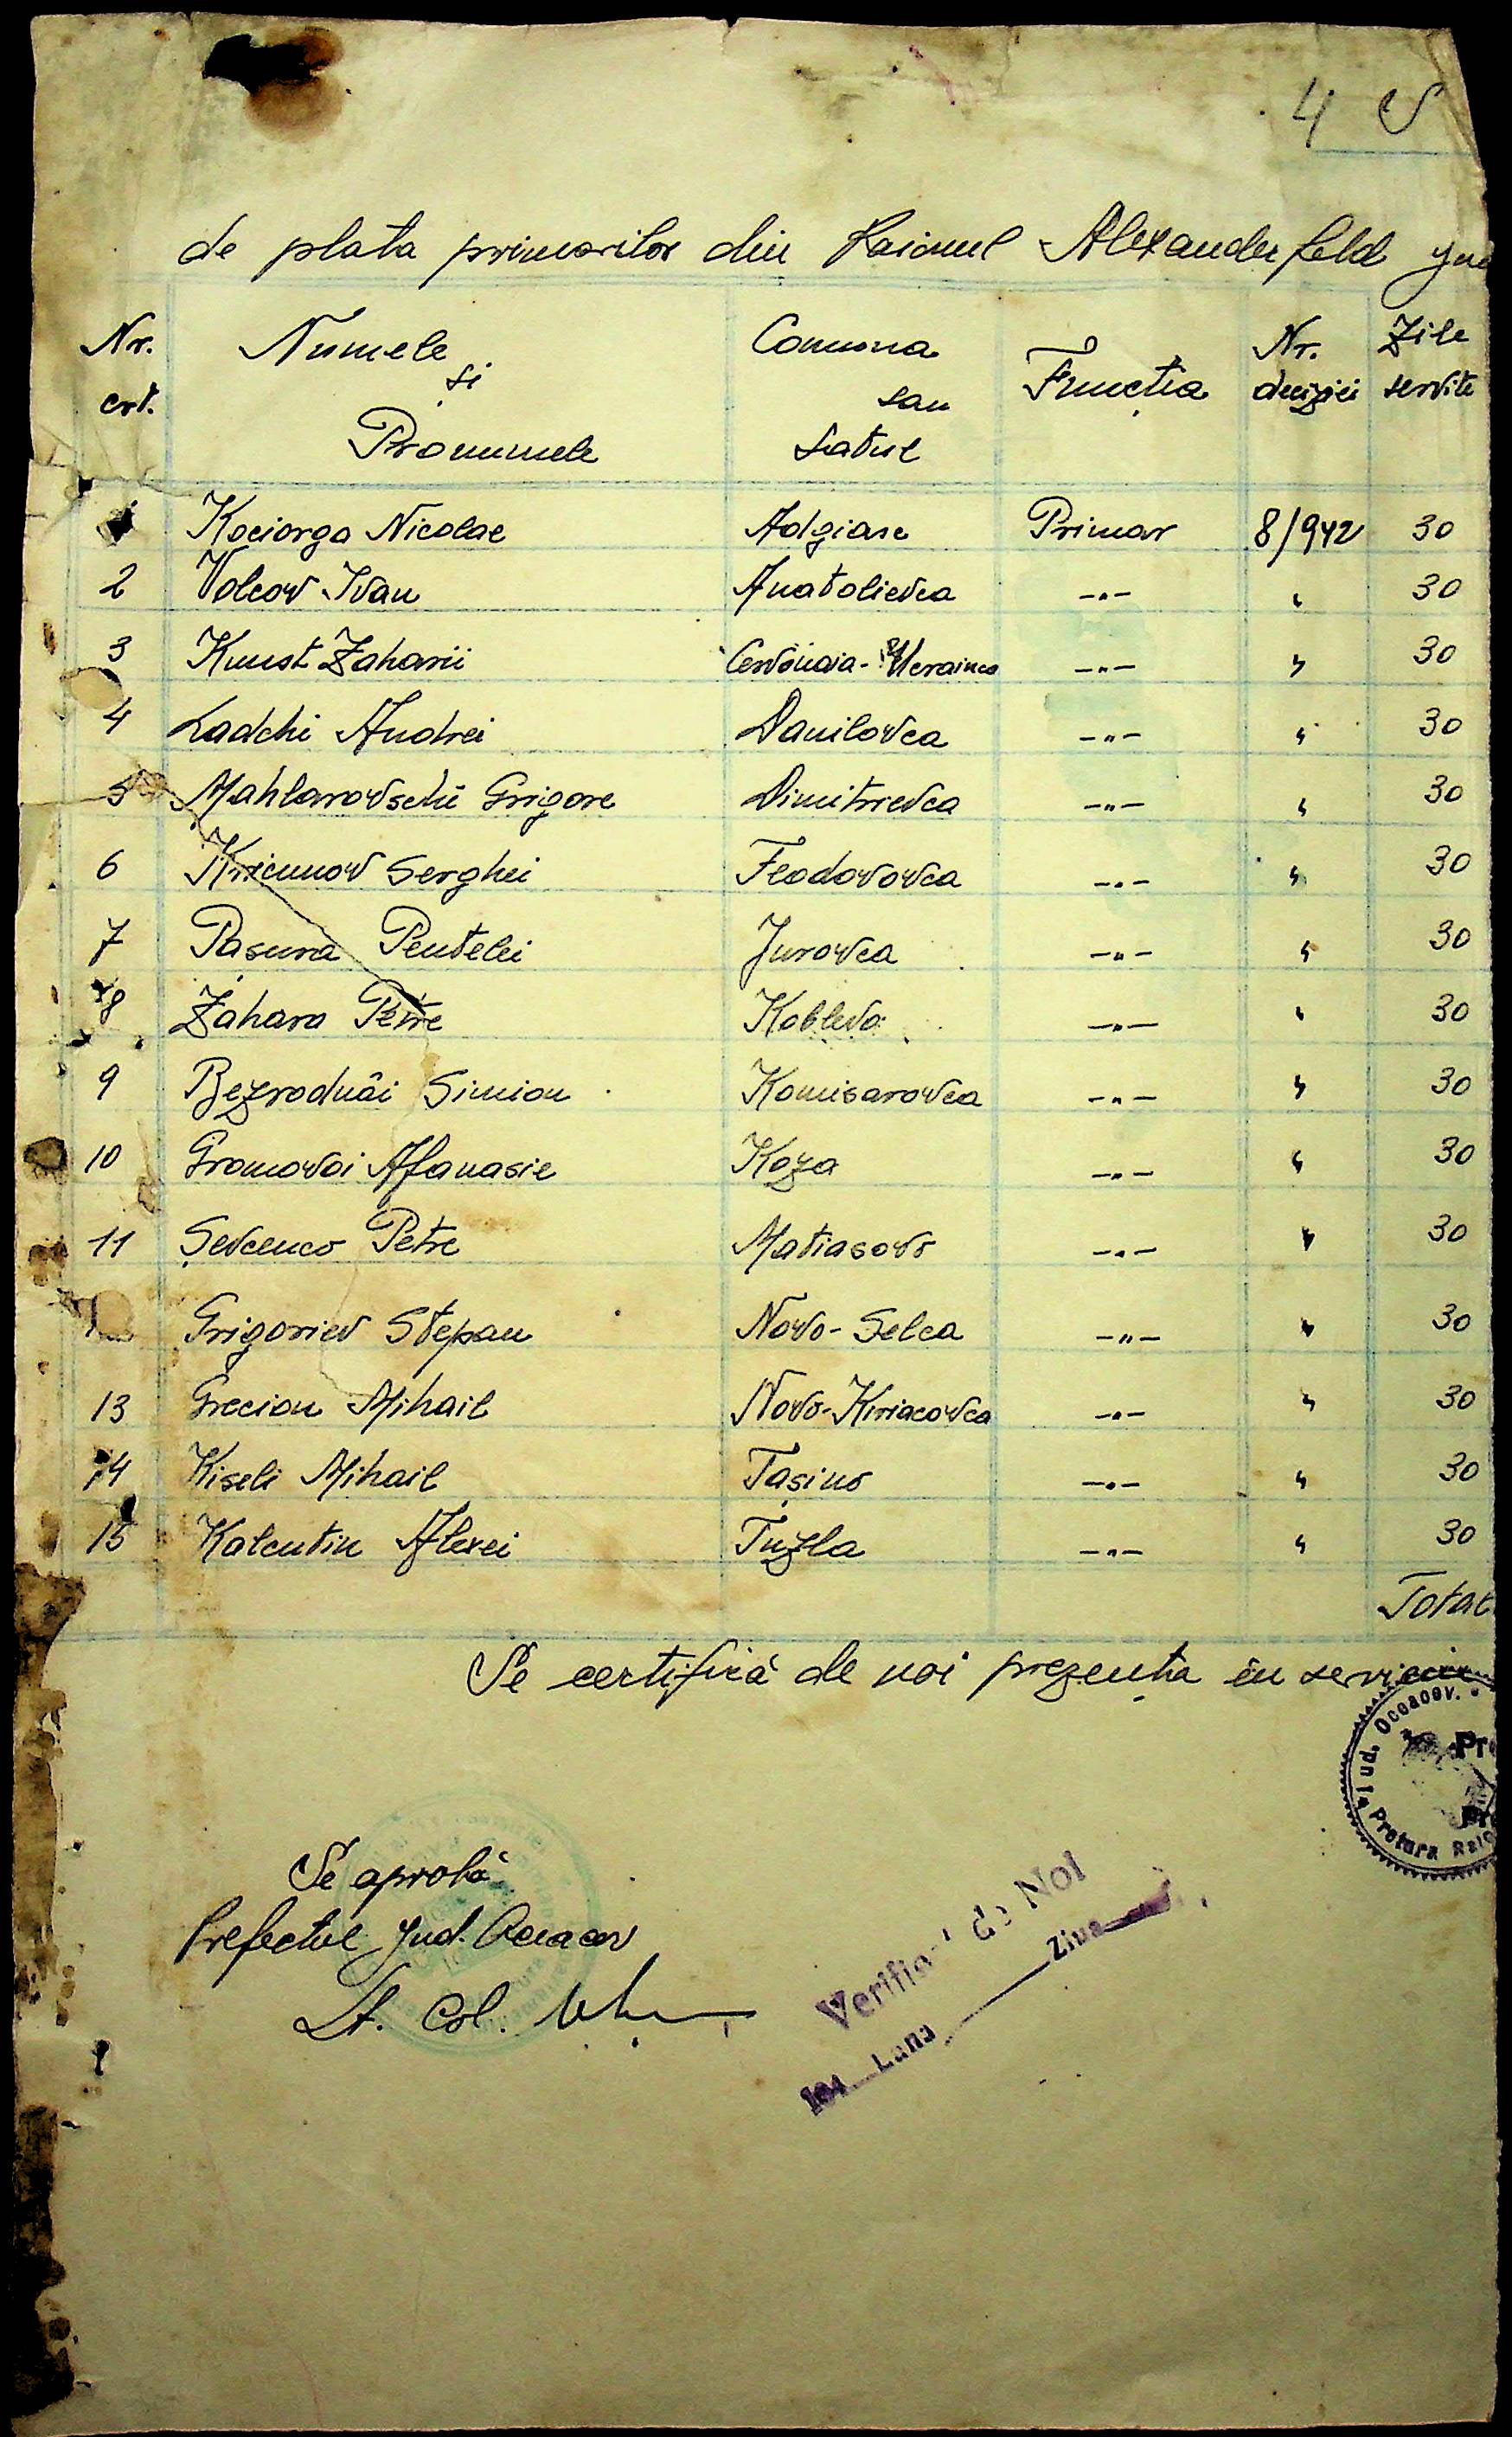 4 S
de plata primarilor din Raionul Alexanderfeld Jud
Nr. crt. Numele și Pronumele Comuna sau Satul Funcția Nr. deciziei Zile servite
1 Kociorga Nicolae Adgiase Primar 8/942 30
2 Volcov Ivan Anatolievca —"— " 30
3 Kunst Zaharii Cervonaia-Ucrainca —"— " 30
4 Ladchi Andrei Danilovca —"— " 30
5 Mahlarovschi Grigore Dimitrievca —"— " 30
6 Kricunov Serghei Feodorovca —"— " 30
7 Pasura Pentelei Jurovca —"— " 30
8 Zahara Petre Koblevo —"— " 30
9 Bezrodnâi Simion Komisarovca —"— " 30
10 Gromovoi Afanasie Koza —"— " 30
11 Șevcenco Petre Matiasovo —"— " 30
Grigoriev Stepan Novo-Selca —"— " 30
13 Grecion Mihail Novo-Kiriacovca —"— " 30
14 Kiseli Mihail Tașino —"— " 30
15 Kalentin Alexei Tuzla —"— " 30
Total
Se certifică de noi prezența în serviciu
Jud. Oceacov.
Pretura Raio
Se aprobă
Prefectul Jud. Oceacov
Lt. Col.
Verificat de Noi
194 Luna Ziua